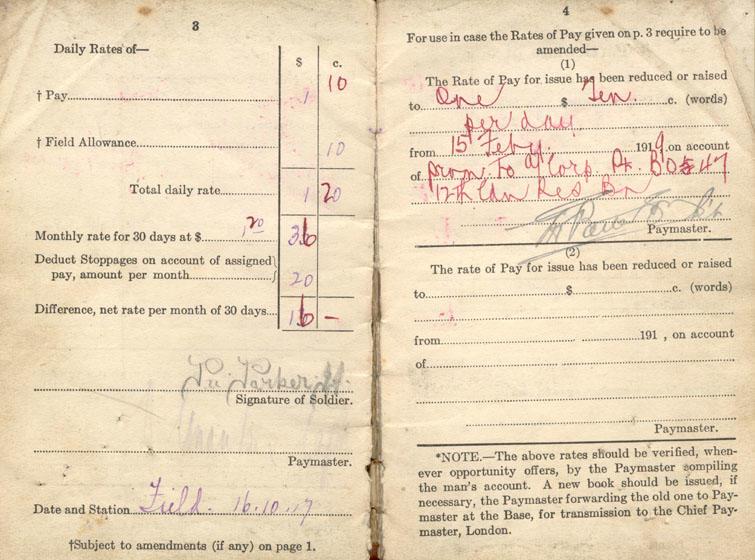 3
Daily Rates of—
$ c.
† Pay 1 10
† Field Allowance 10
Total daily rate 1 20
Monthly rate for 30 days at $ 1.20 36
Deduct Stoppages on account of assigned
pay, amount per month 20
Difference, net rate per month of 30 days 16 —
Signature of Soldier.
Paymaster.
Date and Station Field. 16.10.17
†Subject to amendments (if any) on page 1.
4
For use in case the Rates of Pay given on p. 3 require to be
amended—
(1)
The Rate of Pay for issue has been reduced or raised
to One $ Ten. c. (words)
per day
from 15 Feby. 1919, on account
of prom to a/Corp. Pt. II BO 47
12th Can Res Bn
Paymaster.
(2)
The rate of Pay for issue has been reduced or raised
to $ c. (words)
from 191 , on account
of
Paymaster.
*NOTE.—The above rates should be verified, when-
ever opportunity offers, by the Paymaster compiling
the man's account. A new book should be issued, if
necessary, the Paymaster forwarding the old one to Pay-
master at the Base, for transmission to the Chief Pay-
master, London.